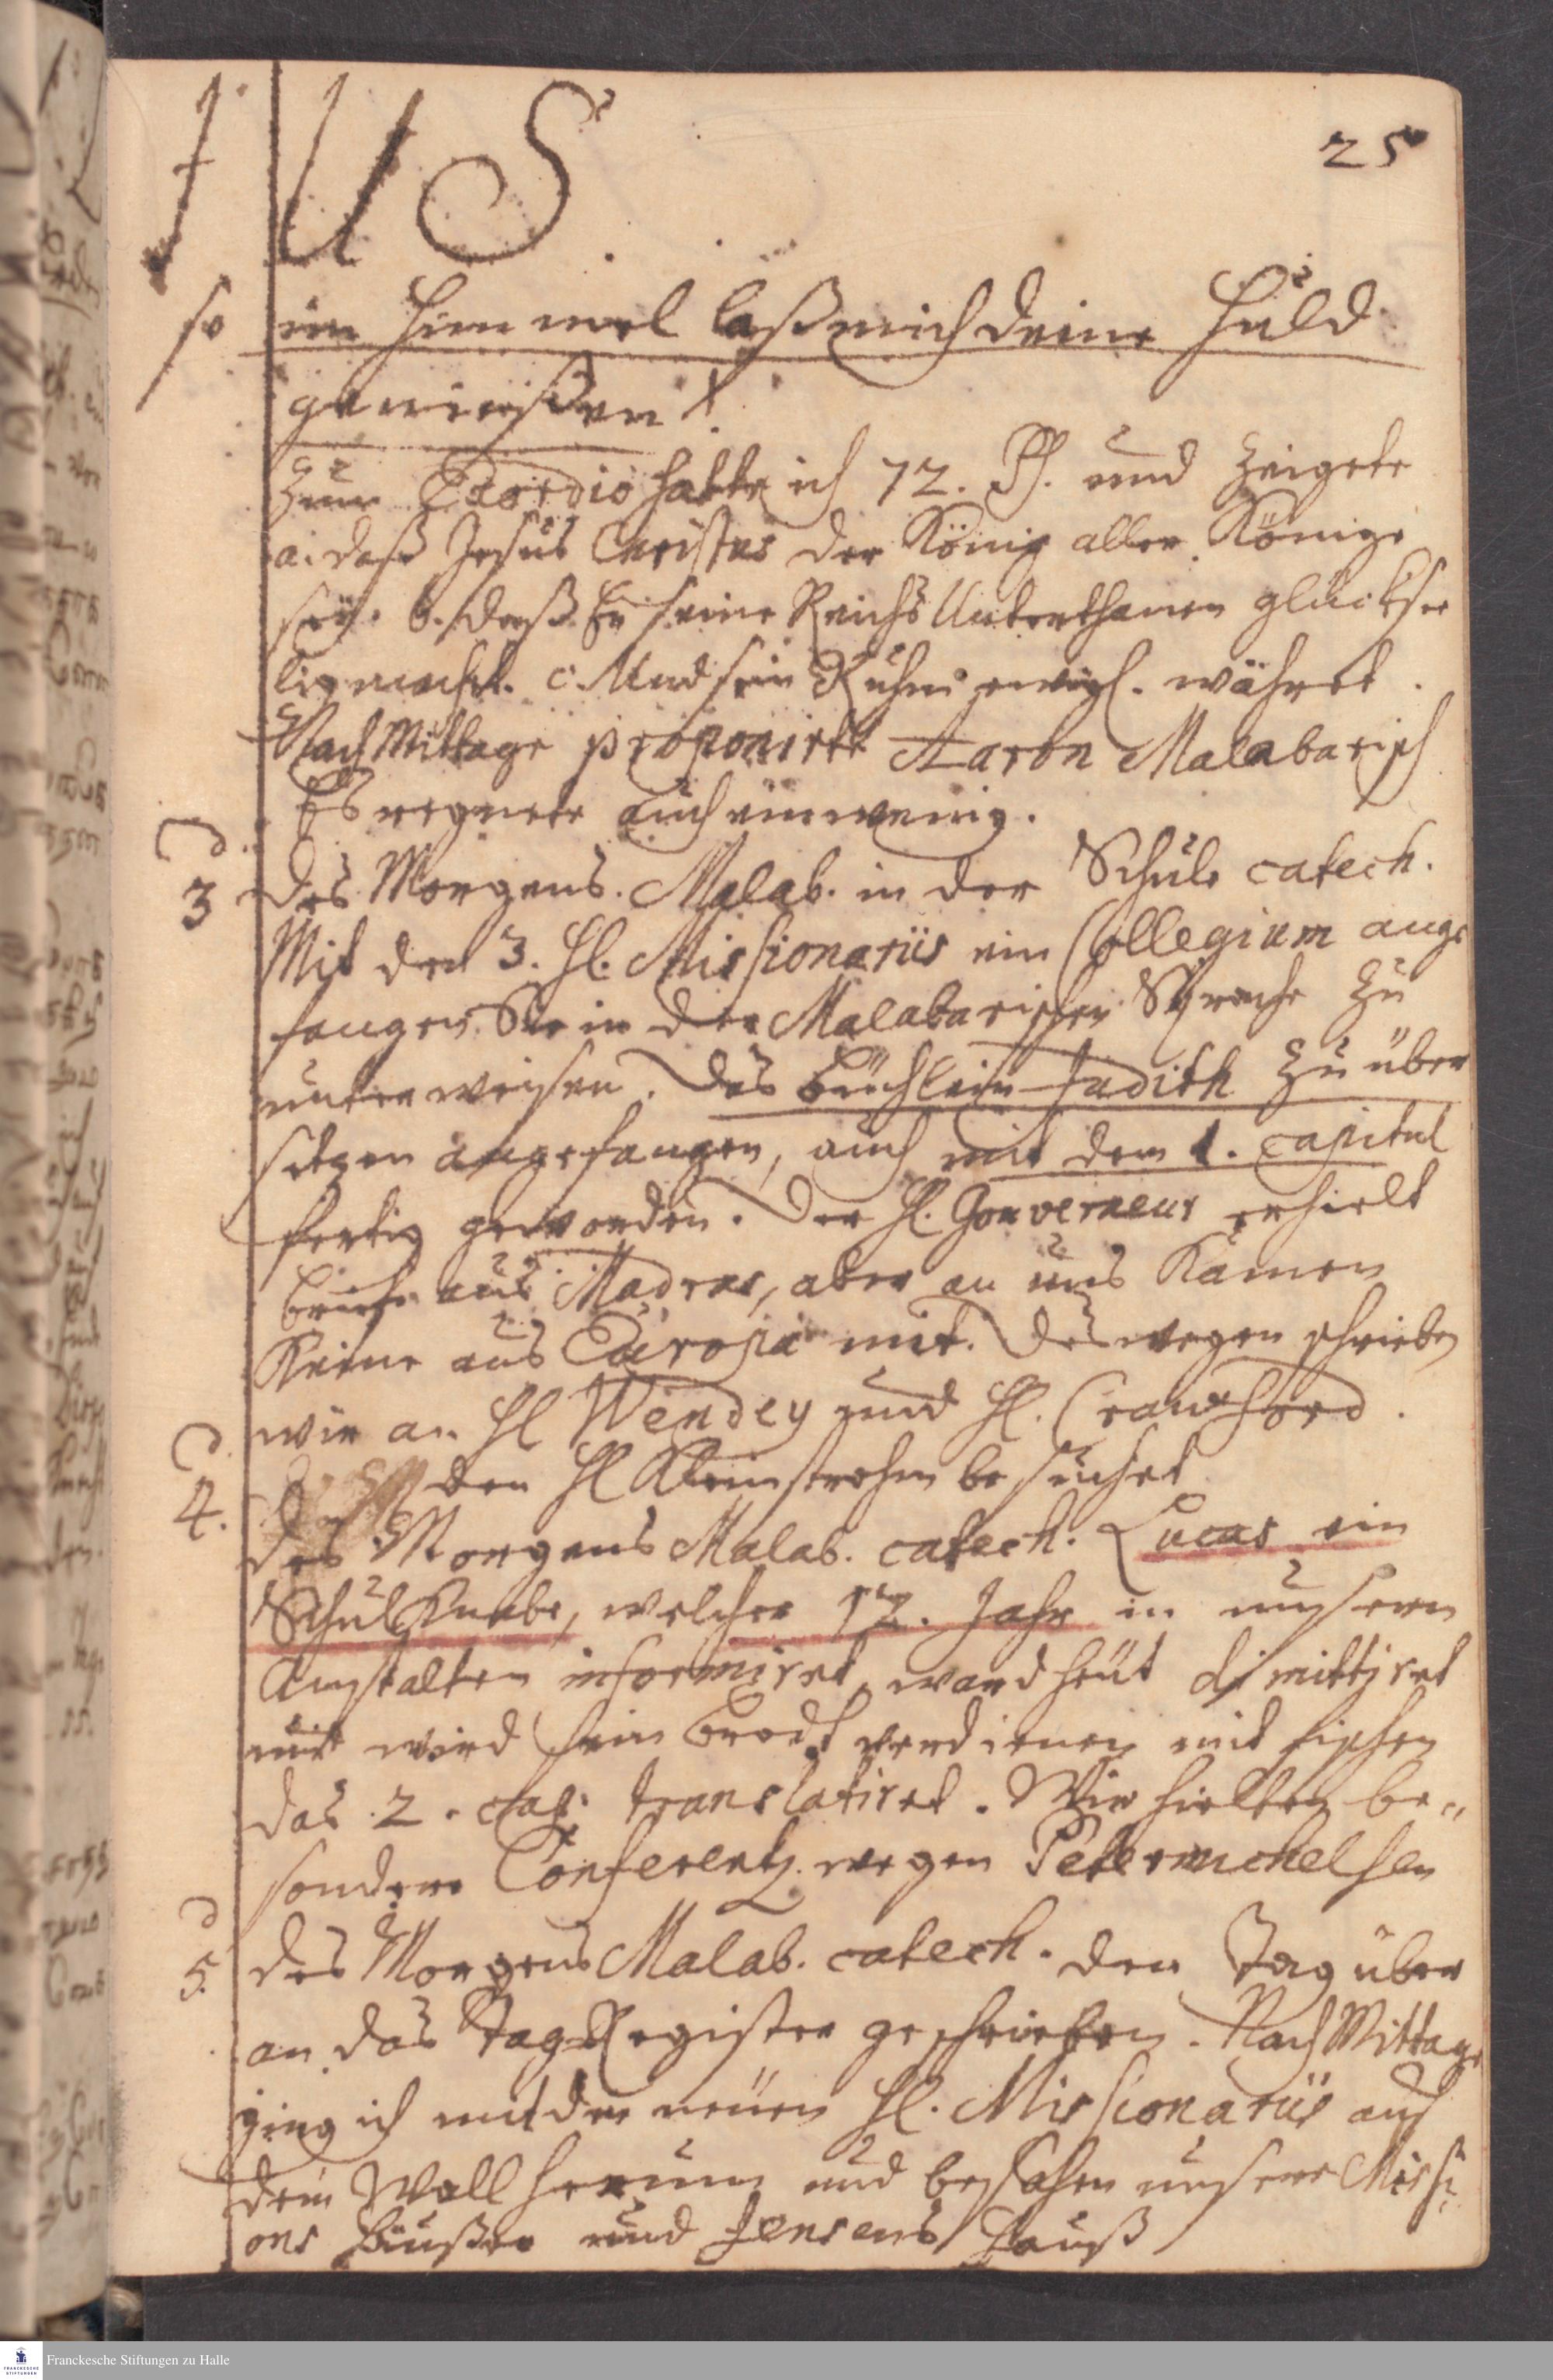 25
J US.
so im Himmel laß mich deine Huld
genießen!
Zum Exordio hatte ich 72. Ps. und zeigete
a. daß Jesus Christus der König aller Könige
sey. b. daß Er seine Reichs Unterthanen glücksee
lig macht. c. Und sein Ruhm ewigl. währet.
Nach Mittage proponirte Aaron Malabarisch
Es regnete auch ein wenig.
d. 3 des Morgens. Malab. in der Schule catech.
Mit den 3. H. Missionariis ein Collegium ange
fangen Sie in der Malabarischen Sprache zu
unterweisen. Das büchlein Judith zu über
setzen angefangen, auch mit dem 1. capitul
fertig geworden. Der H. Gouverneur erhielt
briefe aus Madras, aber an uns kamen
keine aus Europa mit. Deswegen schrieben
wir an H Wendey und H. Crawford.
den H Kleinstrohm besuchet
d. 4. des Morgens Malab. catech. Lucas ein
Schul Knabe, welcher 12. Jahr in unsern
Anstalten informiret, ward heut dimittiret
wird sein brodt verdienen mit fischen
das 2. cap. translatiret. Wir hielten be-
sondere Conferentz wegen Petermichelsen
d 5. des Morgens Malab. catech. den Tag über
an das Tag-Register geschrieben. Nach Mittage
ging ich mit den neuen H. Missionariis auf
dem Wall herum und besahen unsere Missi
ons Häußer und Jensens Hauß
Franckesche Stiftungen zu Halle